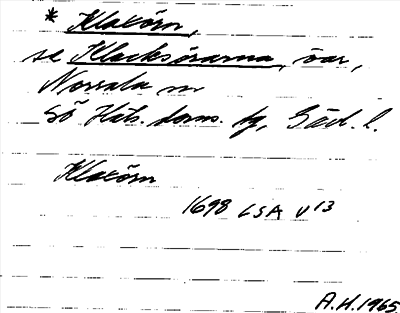 * Klakörn,
se Klacksörarna, öar,
Norrala sn
Sö Häls. doms. hg, Gävl. l.
Klakörn
1698 LSA V 13
A.H. 1965.